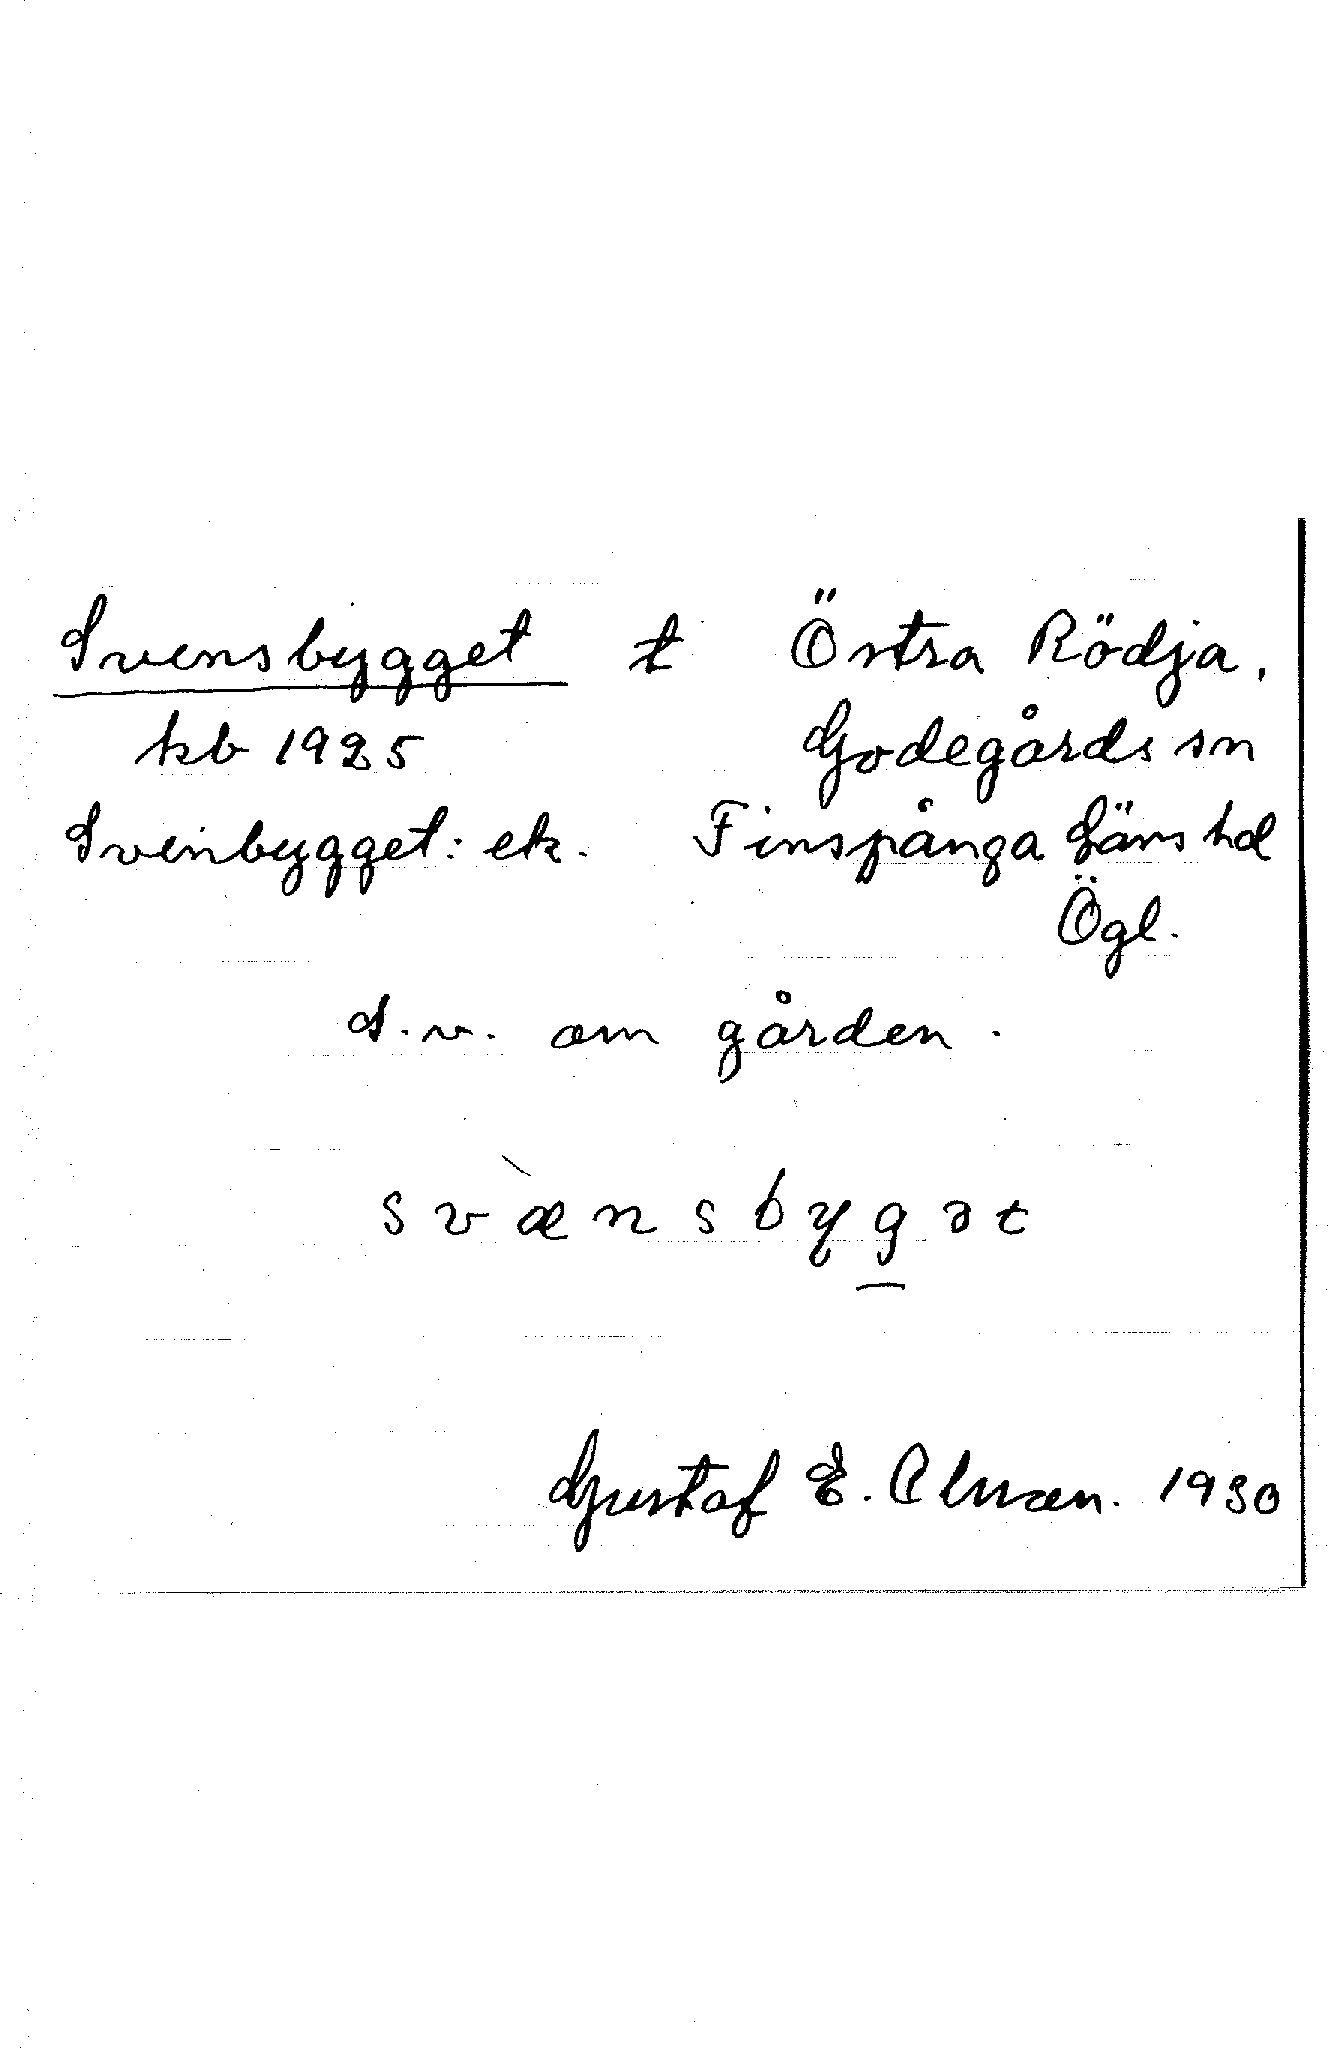 Svensbygget t Östra Rödja,
kb 1925 Godegårds sn
Svenbygget: ek. Finspånga läns hd
Ögl.
S.v. om gården.
svæ̀nsbyg̲ət
Gustaf E. 1930